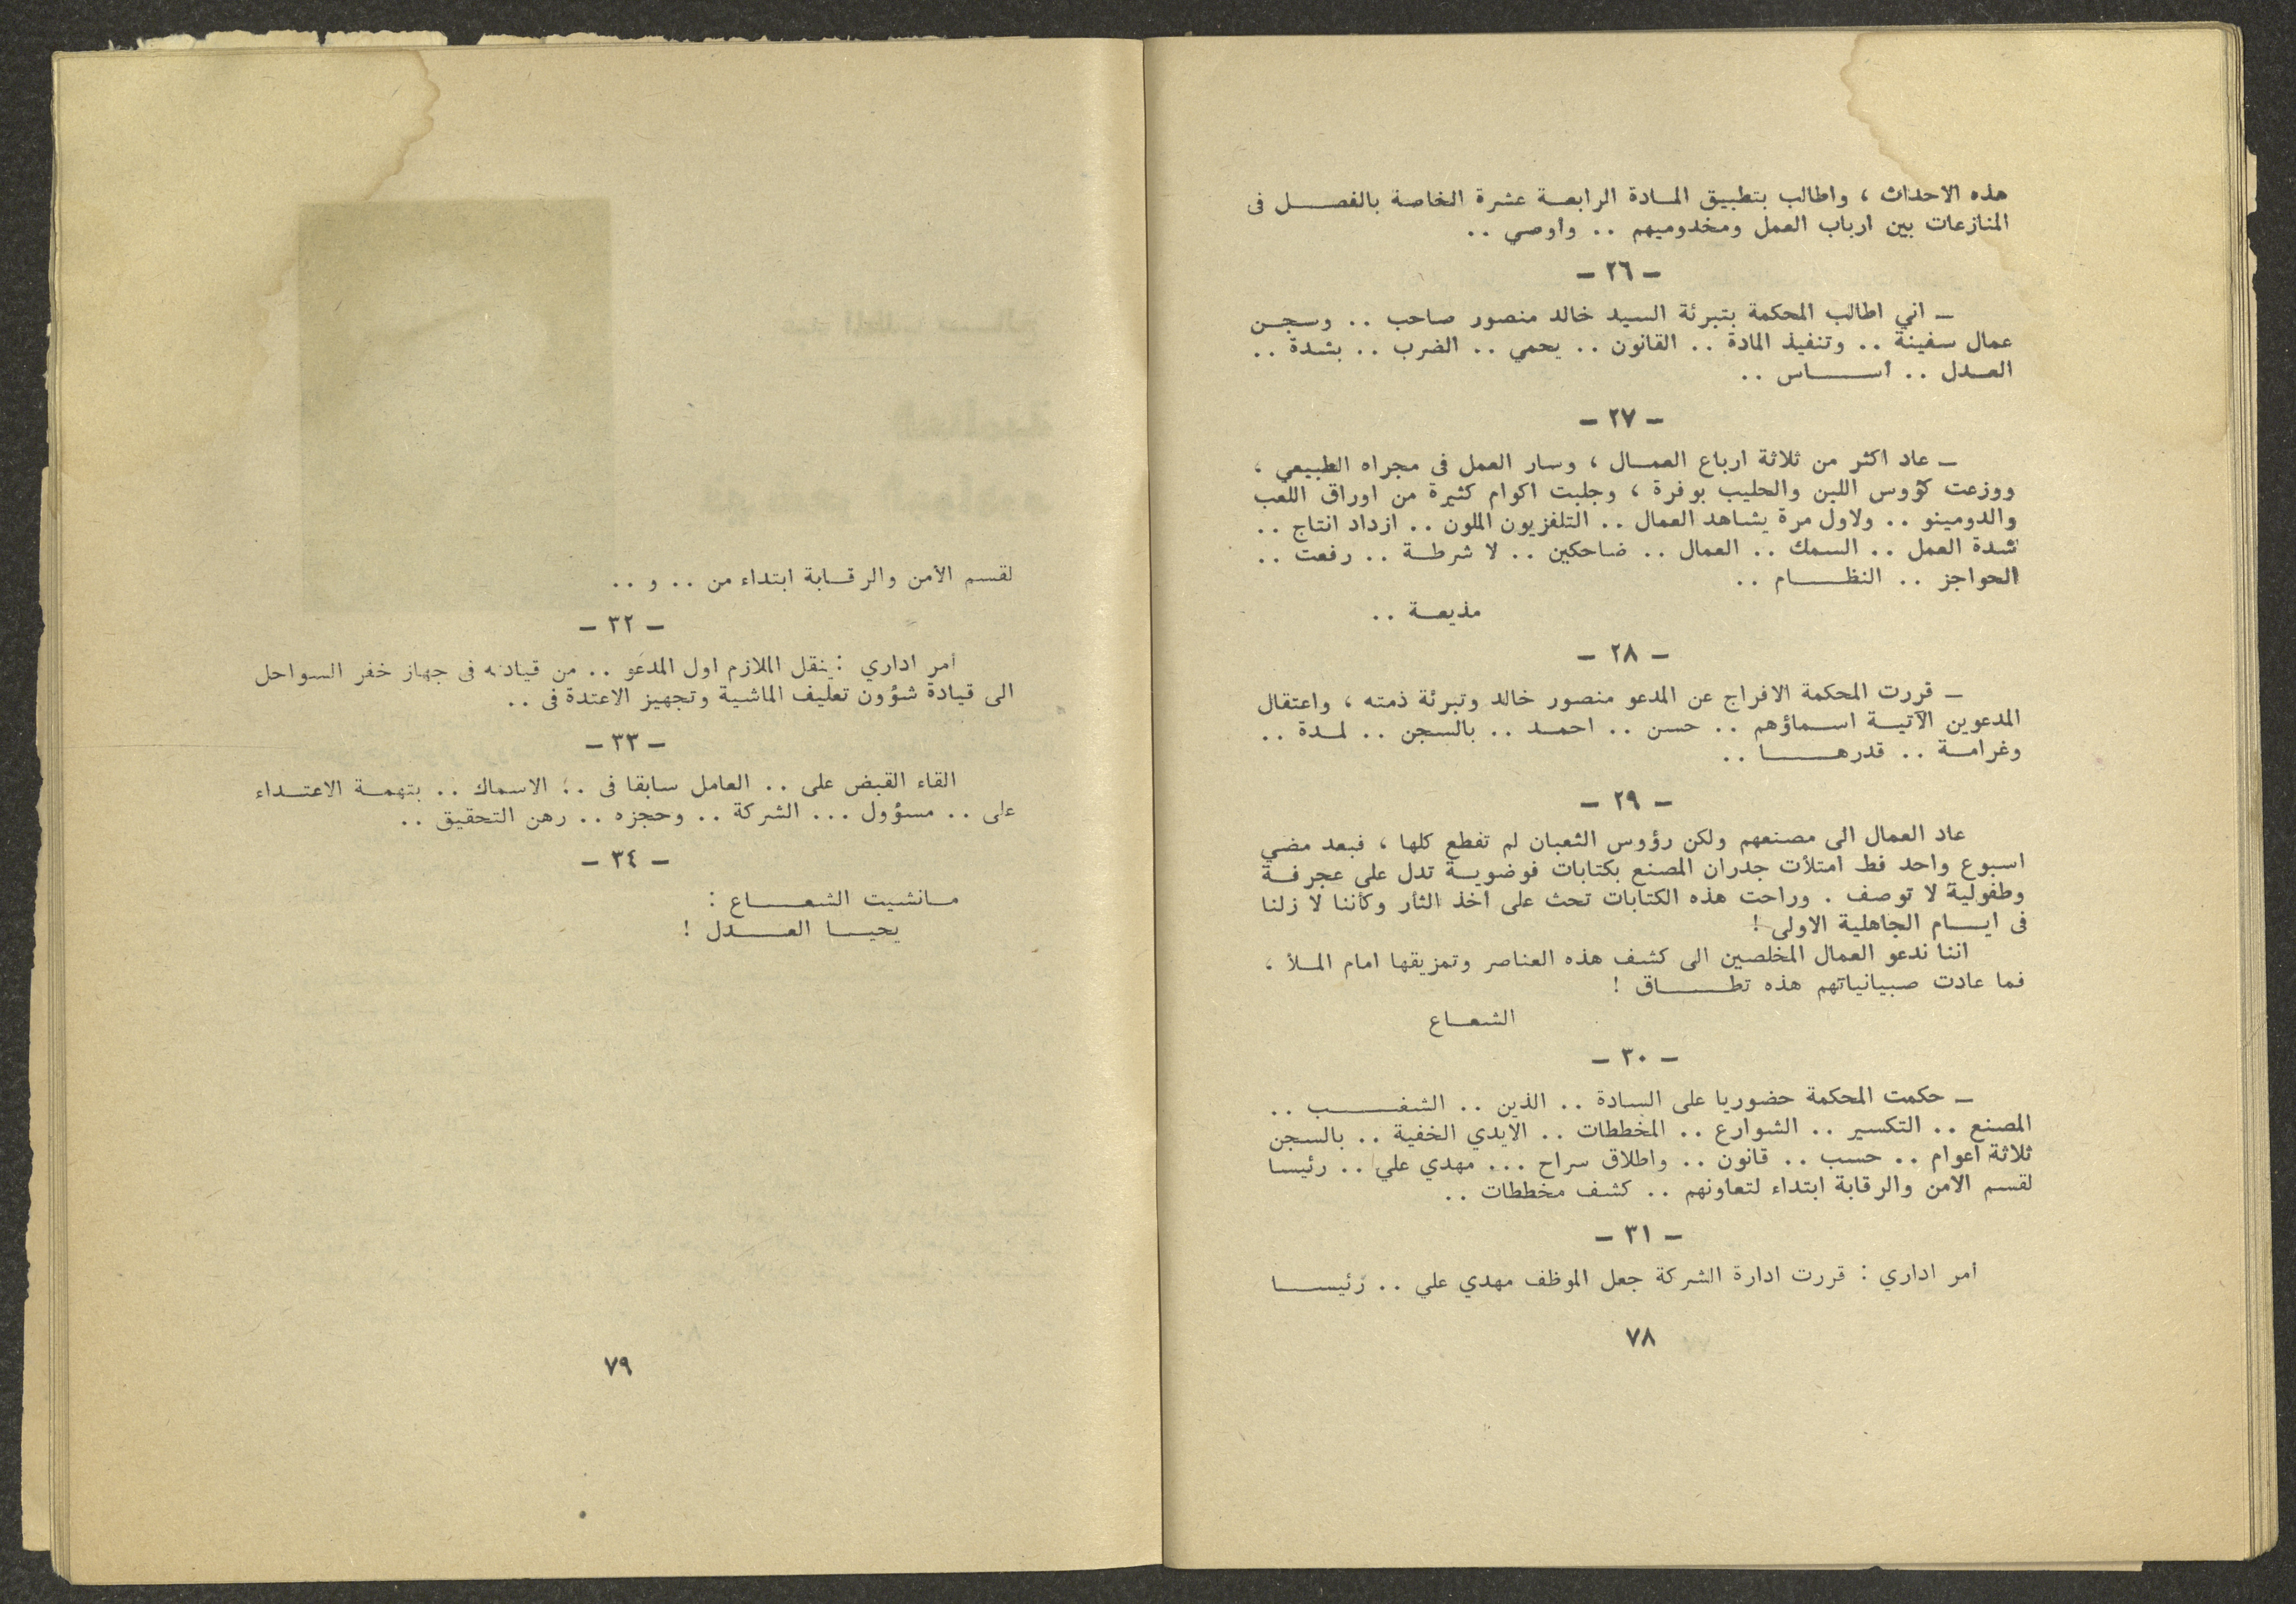 هذه الاحداث ، واطالب بتطبيق المادة الرابعة عشرة الخاصة بالفصل في
المنازعات بين ارباب العمل ومخدوميهم .. وأوصي ..
– ٢٦ –
– اني اطالب المحكمة بتبرئة السيد خالد منصور صاحب .. وسجن
عمال سفينة .. وتنفيذ المادة .. القانون .. يحمي .. الضرب .. بشدة ..
العدل .. أساس ..
– ٢٧ –
– عاد اكثر من ثلاثة ارباع العمال ، وسار العمل في مجراه الطبيعي ،
ووزعت كؤوس اللبن والحليب بوفرة ، وجلبت اكوام كثيرة من اوراق اللعب
والدومينو .. ولاول مرة يشاهد العمال .. التلفزيون الملون .. ازداد انتاج ..
شدة العمل .. السمك .. العمال .. ضاحكين .. لا شرطة .. رفعت ..
الحواجز .. النظام ..
مذيعة ..
– ٢٨ –
– قررت المحكمة الافراج عن المدعو منصور خالد وتبرئة ذمته ، واعتقال
المدعوين الآتية اسماؤهم .. حسن .. احمد .. بالسجن .. لمدة ..
وغرامة .. قدرها ..
– ٢٩ –
عاد العمال الى مصنعهم ولكن رؤوس الثعبان لم تقطع كلها ، فبعد مضي
اسبوع واحد فط امتلأت جدران المصنع بكتابات فوضوية تدل على عجرفة
وطفولية لا توصف . وراحت هذه الكتابات تحث على اخذ الثأر وكأننا لا زلنا
في ايام الجاهلية الاولى !
اننا ندعو العمال المخلصين الى كشف هذه العناصر وتمزيقها امام الملأ ،
فما عادت صبيانياتهم هذه تطاق !
الشعاع
– ٣٠ –
– حكمت المحكمة حضوريا على السادة .. الذين .. الشغب ..
المصنع .. التكسير .. الشوارع .. المخططات .. الايدي الخفية .. بالسجن
ثلاثة اعوام .. حسب .. قانون .. واطلاق سراح ... مهدي علي .. رئيسا
لقسم الامن والرقابة ابتداء لتعاونهم .. كشف مخططات ..
– ٣١ –
امر اداري : قررت ادارة الشركة جعل الموظف مهدي علي .. رئيسا
٧٨
لقسم الأمن والرقابة ابتداء من .. و ..
– ٣٢ –
أمر اداري : ينقل الملازم اول المدعو .. من قيادته في جهاز خفر السواحل
الى قيادة شؤون تعليف الماشية وتجهيز الاعتدة في ..
– ٣٣ –
القاء القبض على .. العامل سابقا في .. الاسماك .. بتهمة الاعتداء
على .. مسؤول ... الشركة .. وحجزه .. رهن التحقيق ..
– ٣٤ –
مانشيت الشعاع :
يحيا العدل !
٧٩